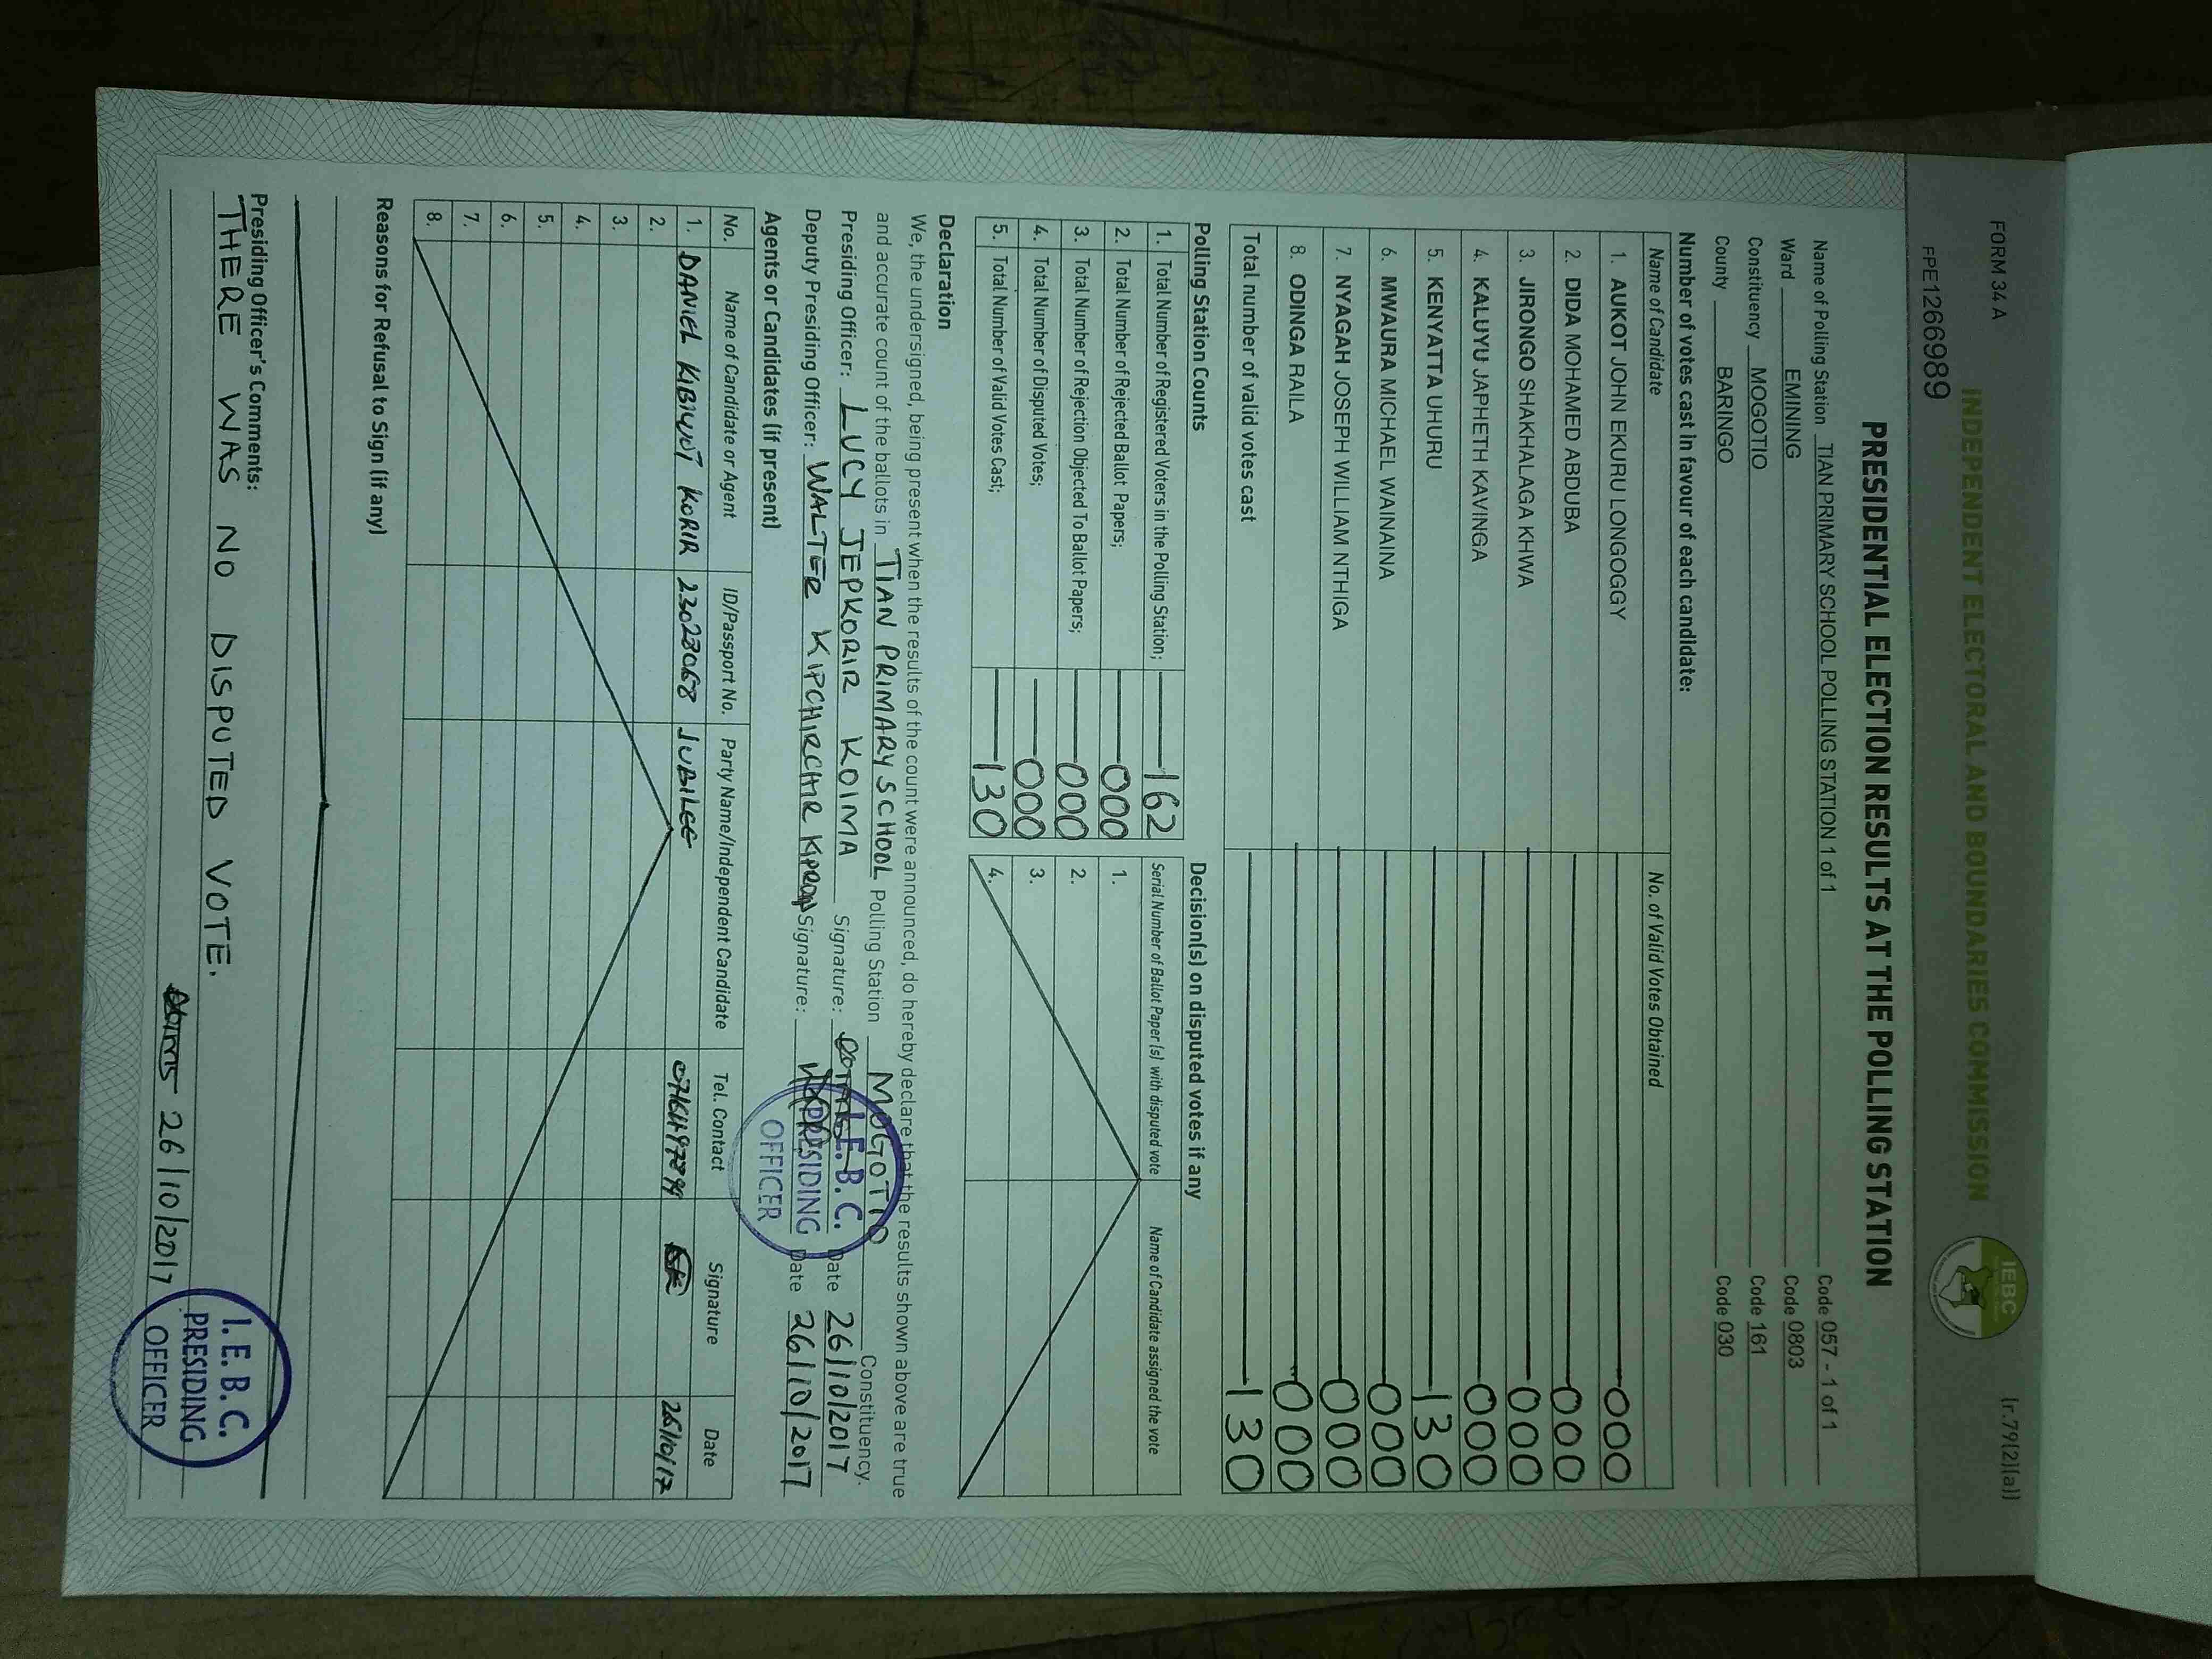 FORM 34 A
(r.79(2)(a))
FPE1266989
INDEPENDENT ELECTORAL AND BOUNDARIES COMMISSION
IEBC
PRESIDENTIAL ELECTION RESULTS AT THE POLLING STATION
Name of Polling Station TIAN PRIMARY SCHOOL POLLING STATION 1 of 1 Code 057 - 1 of 1
Ward EMINING Code 0803
Constituency MOGOTIO Code 161
County BARINGO Code 030
Number of votes cast in favour of each candidate:
Name of Candidate No. of Valid Votes Obtained
1. AUKOT JOHN EKURU LONGOGGY 000
2. DIDA MOHAMED ABDUBA 000
3. JIRONGO SHAKHALAGA KHWA 000
4. KALUYU JAPHETH KAVINGA 000
5. KENYATTA UHURU 130
6. MWAURA MICHAEL WAINAINA 000
7. NYAGAH JOSEPH WILLIAM NTHIGA 000
8. ODINGA RAILA 000
Total number of valid votes cast 130
Polling Station Counts
1. Total Number of Registered Voters in the Polling Station; 162
2. Total Number of Rejected Ballot Papers; 000
3. Total Number of Rejection Objected To Ballot Papers; 000
4. Total Number of Disputed Votes; 000
5. Total Number of Valid Votes Cast; 130
Decision(s) on disputed votes if any
Serial Number of Ballot Paper (s) with disputed vote Name of Candidate assigned the vote
1.
2.
3.
4.
Declaration
We, the undersigned, being present when the results of the count were announced, do hereby declare that the results shown above are true
and accurate count of the ballots in TIAN PRIMARY SCHOOL Polling Station MOGOTIO Constituency.
Presiding Officer: LUCY JEPKORIR KOIMA Signature: Date 26/10/2017
Deputy Presiding Officer: WALTER KIPCHIRCHIR Signature: Date 26/10/2017
I.E.B.C.
PRESIDING
OFFICER
Agents or Candidates (if present)
No. Name of Candidate or Agent ID/Passport No. Party Name/Independent Candidate Tel. Contact Signature Date
1. DANIEL KIBIWOT KORIR 23023068 JUBILEE 26/10/17
2.
3.
4.
5.
6.
7.
8.
Reasons for Refusal to Sign (if any)
Presiding Officer's Comments:
THERE WAS NO DISPUTED VOTE.
26/10/2017
I.E.B.C.
PRESIDING
OFFICER